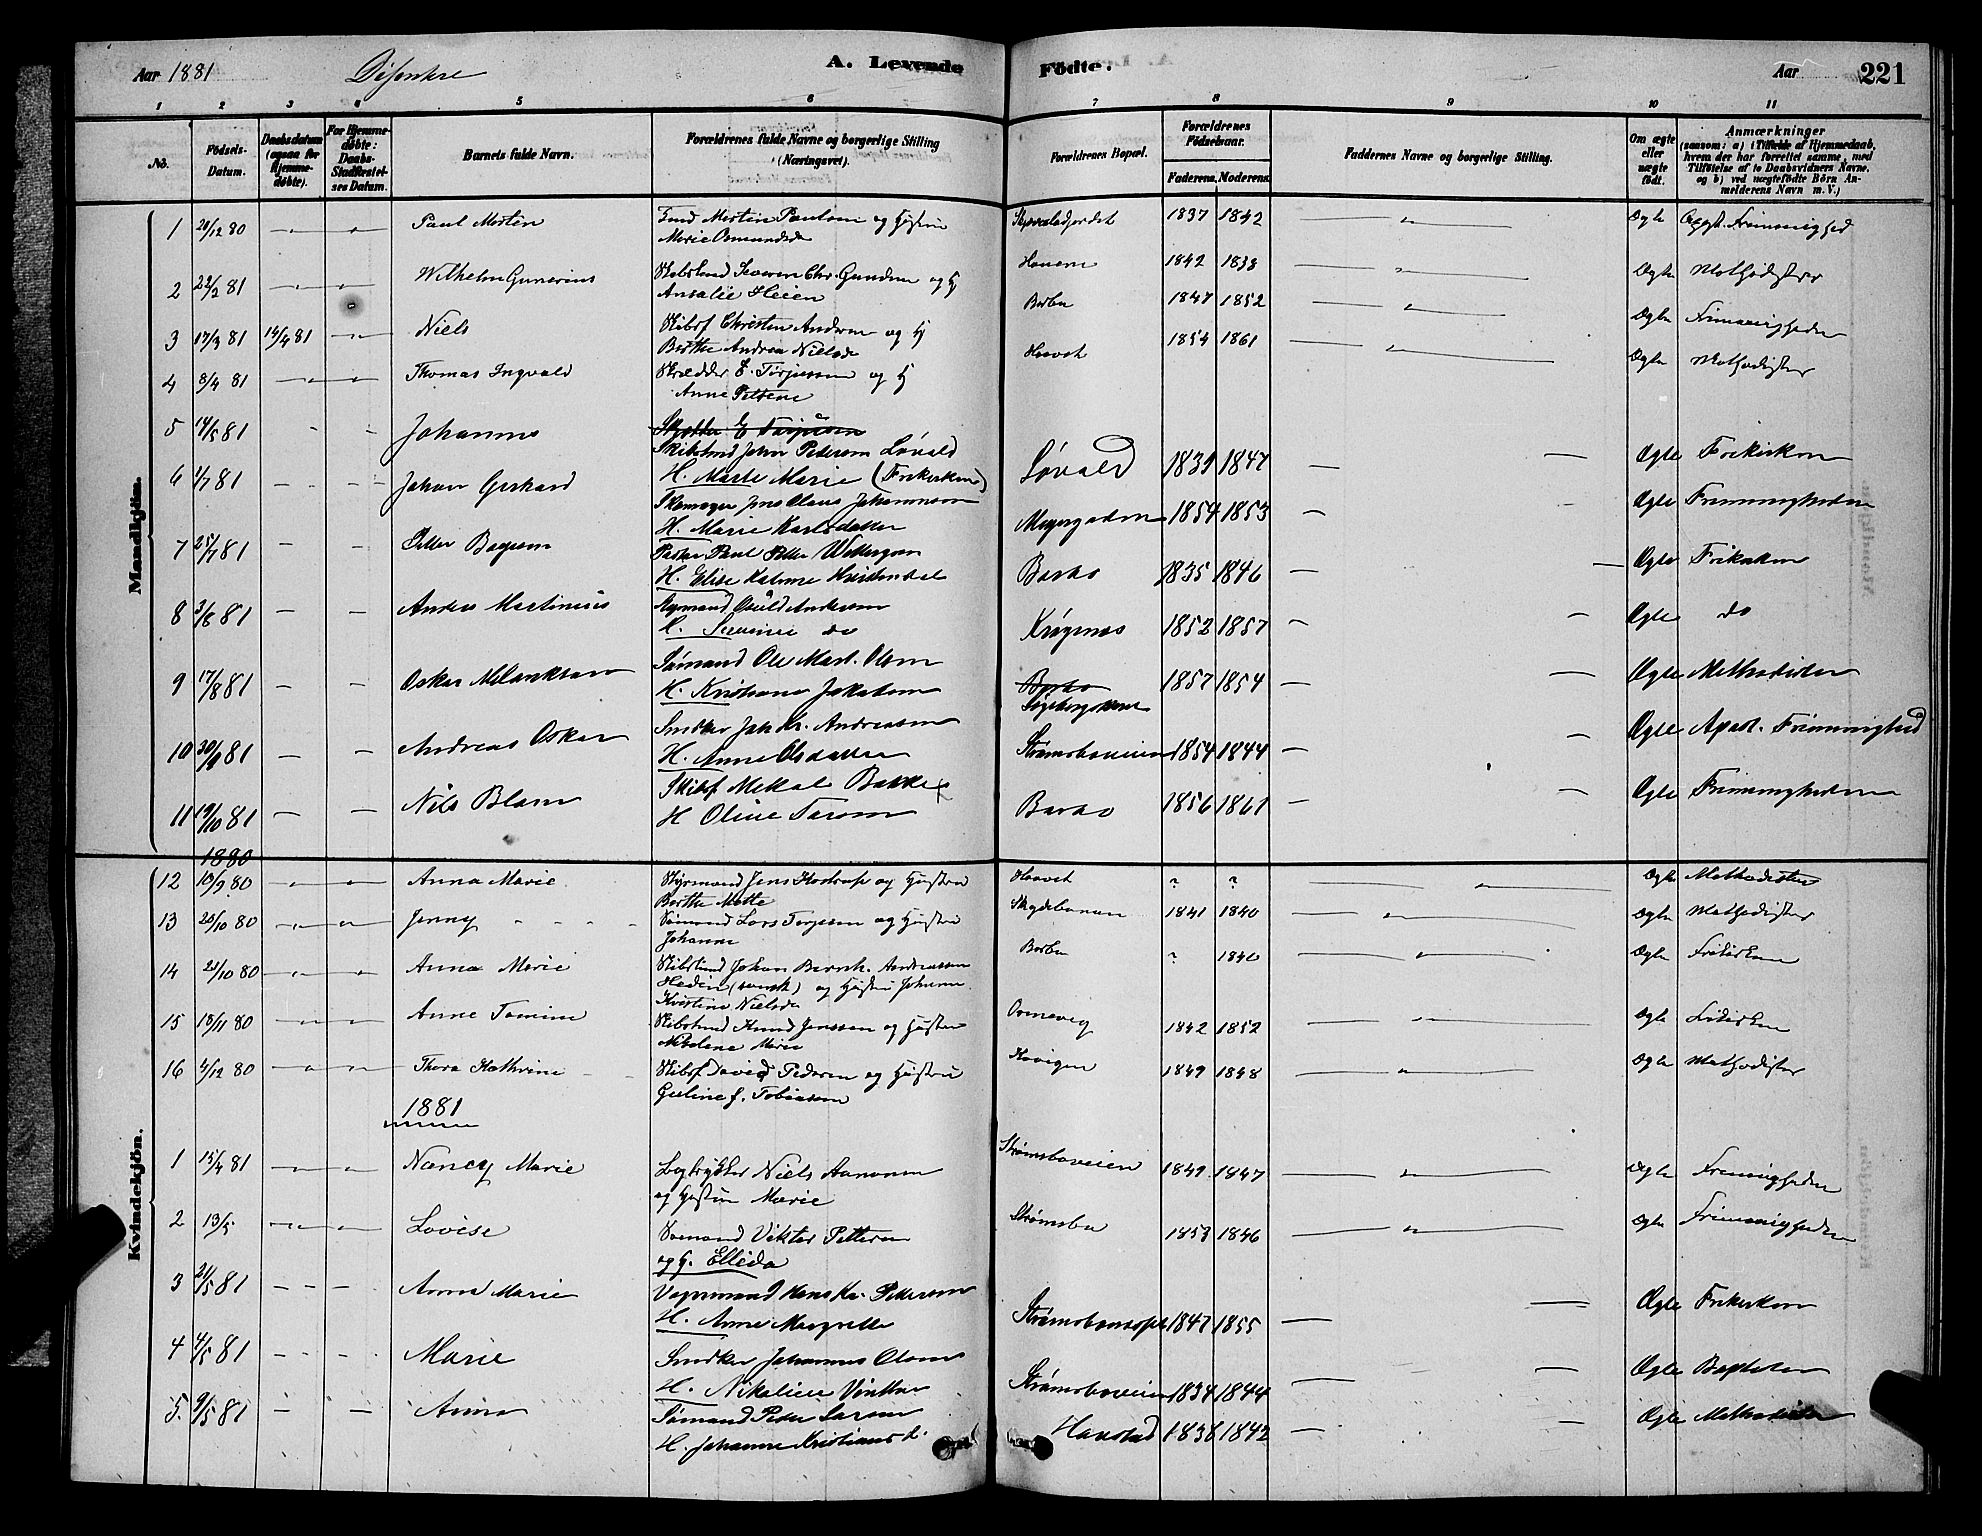 Aar 1881
A. Levende Födte.
Aar 221
1 2 3 4 5 6 7 8 9 10 11
No.
Födsels-Datum.
Daabsdatum (ogsaa for Hjemmedøbte).
For Hjemmedøbte: Daabs-Stadfæstelses Datum.
Barnets fulde Navn.
Forældrenes fulde Navne og borgerlige Stilling (Næringsvei).
Forældrenes Bopæl.
Forældrenes Födselsaar.
Faderens. Moderens.
Faddernes Navne og borgerlige Stilling.
Om ægte eller uægte født.
Anmærkninger (saasom: a) i Tilfælde af Hjemmedaab, hvem der har forrettet samme, med Tilføielse af to Daabsvidners Navne, og b) ved uægtefødte Børn Anmelderens Navn m. V.)
Mandkjön.
1 20/12 80 Paul Morten
Morten Paulsen og Hustru
Marie Osmundsd
1837 1842 Ægte Apgst. Frimenighed
2 22/2 81 Wilhelm Gunerius
Severin Chr. Gundersen og H
Ansalie Heien
1842 1833 Ægte Methodister
3 17/3 81 14/4 81 Niels
Skibsf Christen Andersen og H
Berthe Andrea Nielsd
Barbu 1847 1852 Ægte Frimenigheden
4 8/4 81 Thomas Ingvald
Skrædder E. Torjussen og H
Anne Petrine
Haavet 1854 1861 Ægte Methodister
5 14/5 81 Johannes
Skrædder E Torjussen
Skibstmd John Pedersen Løvald
H. Marte Marie (Frikirken)
Løvald 1839 1847 Ægte Frikirken
6 1/7 81 Johan Gerhard
Skomager Jens Claus Johannesen
H. Marie Karlsdatter
1854 1853 Ægte Frimenigheden
7 25/7 81 Petter
Paul Petter Wettergren
H. Elise
Barbo 1835 1846 Ægte Frikirken
8 3/8 81 Anders Martinius
Osuld Andersen
H. Severine do
Krøgenes 1852 1857 Ægte do
9 17/8 81 Oskar Melankton
Sømand Ole Mart. Olsen
H. Kristiana Jakobsen
Barbo
1857 1854 Ægte Methodisten
10 30/9 81 Andreas Oskar
Snedker Joh Kr. Andreassen
H. Anne Olsdatter
Strømsboveien 1854 1844 Ægte Apost. Frimenighed
11 19/10 81 Nils Blom
Skibsf Mekal Bakke
H Oline Tarom
Barbo 1856 1861 Ægte Frimenigheden
Kvindekjön.
1880
12 10/9 80 Anna Marie
Styrmand Jens Hostrup og Hustru
Berthe Mette
Haavet ? ? Ægte Methodister
13 20/10 80 Jenny
Sømand Lars Torjesen og Hustru
Johanne
Skydebanen 1841 1840 Ægte Methodister
14 21/10 80 Anna Marie
Skibstmd Johan Bernh. Andreassen
Hedin (svensk) og Hustru Johanne
Kristine Nielsd
Barbu ? 1840 Ægte Frikirken
15 18/11 80 Anne Tomine
Skibstmd Knud Jenssen og Hustru
Nikolene Marie
Ormevig 1842 1852 Ægte Frikirken
16 4/12 80 Thora Kathrine
Skibsf David Pedersen og Hustru
Guline f. Tobiassen
1849 1848 Ægte Methodister
1881
1 15/4 81 Nancy Marie
Logtrykker Niels Aanonsen
og Hustru Marie
Strømsboveien 1849 1847 Ægte Frimenigheden
2 13/5 Lovise
Sømand Viktor Pettersen
og H. Elleda
Strømsbu 1853 1846 Ægte Frimenigheden
3 21/5 81 Anna Marie
Vognmand Hans Kr. Pettersen
H. Anne Margrette
1847 1855 Ægte Frikirken
4 4/5 81 Marie
Snedker Johannes Olsen
H. Nikoline
Strømsboveien 1834 1844 Ægte Baptister
5. 9/5 81 Anna
Sømand Peder Larsen
H. Johanne Kristiansd.
Havstad 1838 1842 Ægte Methodister